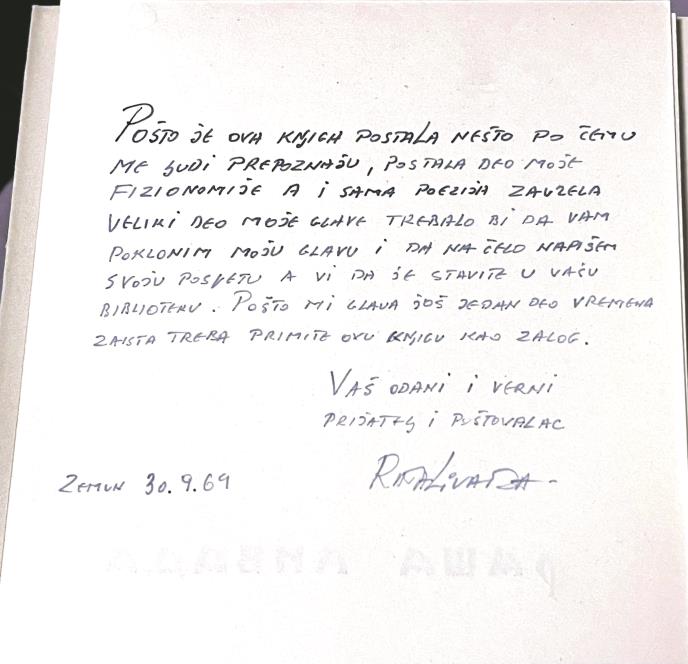 POŠTO JE OVA KNJIGA POSTALA NEŠTO PO ČEMU
ME LJUDI PREPOZNAJU, POSTALA DEO MOJE
FIZIONOMIJE A I SAMA POEZIJA ZAUZELA
VELIKI DEO MOJE GLAVE TREBALO BI DA VAM
POKLONIM MOJU GLAVU I DA NA ČELO NAPIŠEM
SVOJU POSVETU A VI DA JE STAVITE U VAŠU
BIBLIOTEKU. POŠTO MI GLAVA JOŠ JEDAN DEO VREMENA
ZAISTA TREBA PRIMITE OVU KNJIGU KAO ZALOG.
VAŠ ODANI I VERNI
PRIJATELJ I POŠTOVALAC
RAŠA LIVADA
ZEMUN 30.9.69
РАША ЛИВАДА